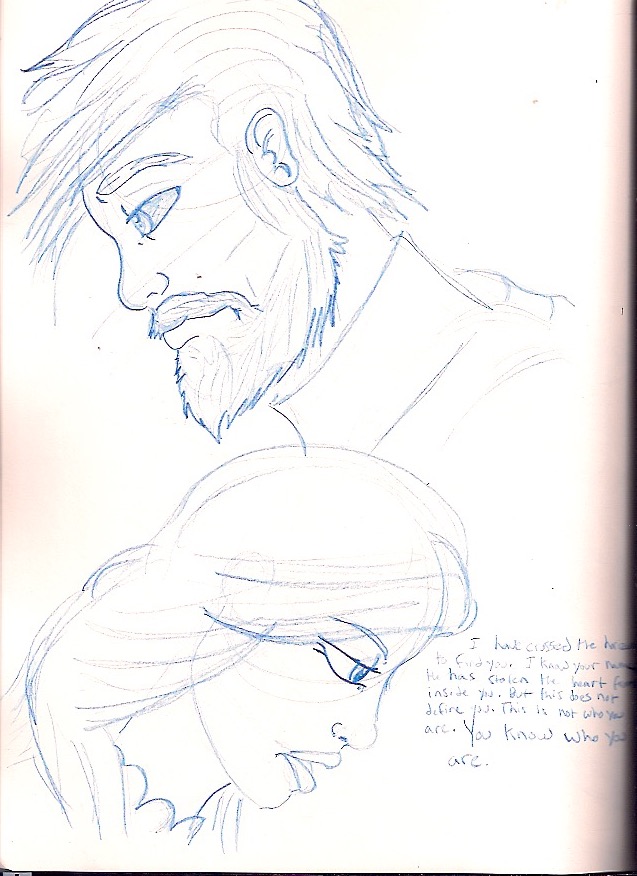 I have crossed the
to find you. I know your name
He has stolen the heart from
inside you. But this does not
define you. This is not who you
are. You know who you
are.